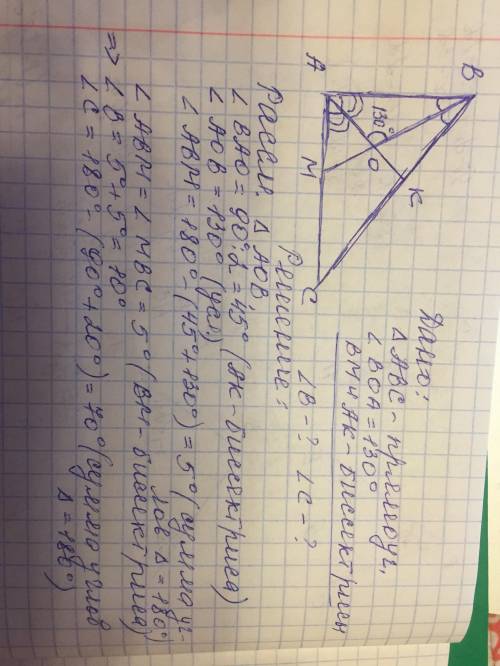 Дано:
△ ABC - прямоуг.
∠ BOA = 130°
BM и AK - биссектрисы
∠B - ? ∠C - ?
B
K
O
130°
A
M
C
Решение:
Рассм. △ AOB
∠ BAO = 90°:2 = 45° (AK - биссектриса)
∠ AOB = 130° (усл)
∠ ABM = 180° - (45° + 130°) = 5° (сумма уг-
лов △ = 180°)
∠ ABM = ∠ MBC = 5° (BM - биссектриса)
=> ∠ B = 5° + 5° = 10°
∠ C = 180° - (90° + 10°) = 70° (сумма углов
△ = 180°)